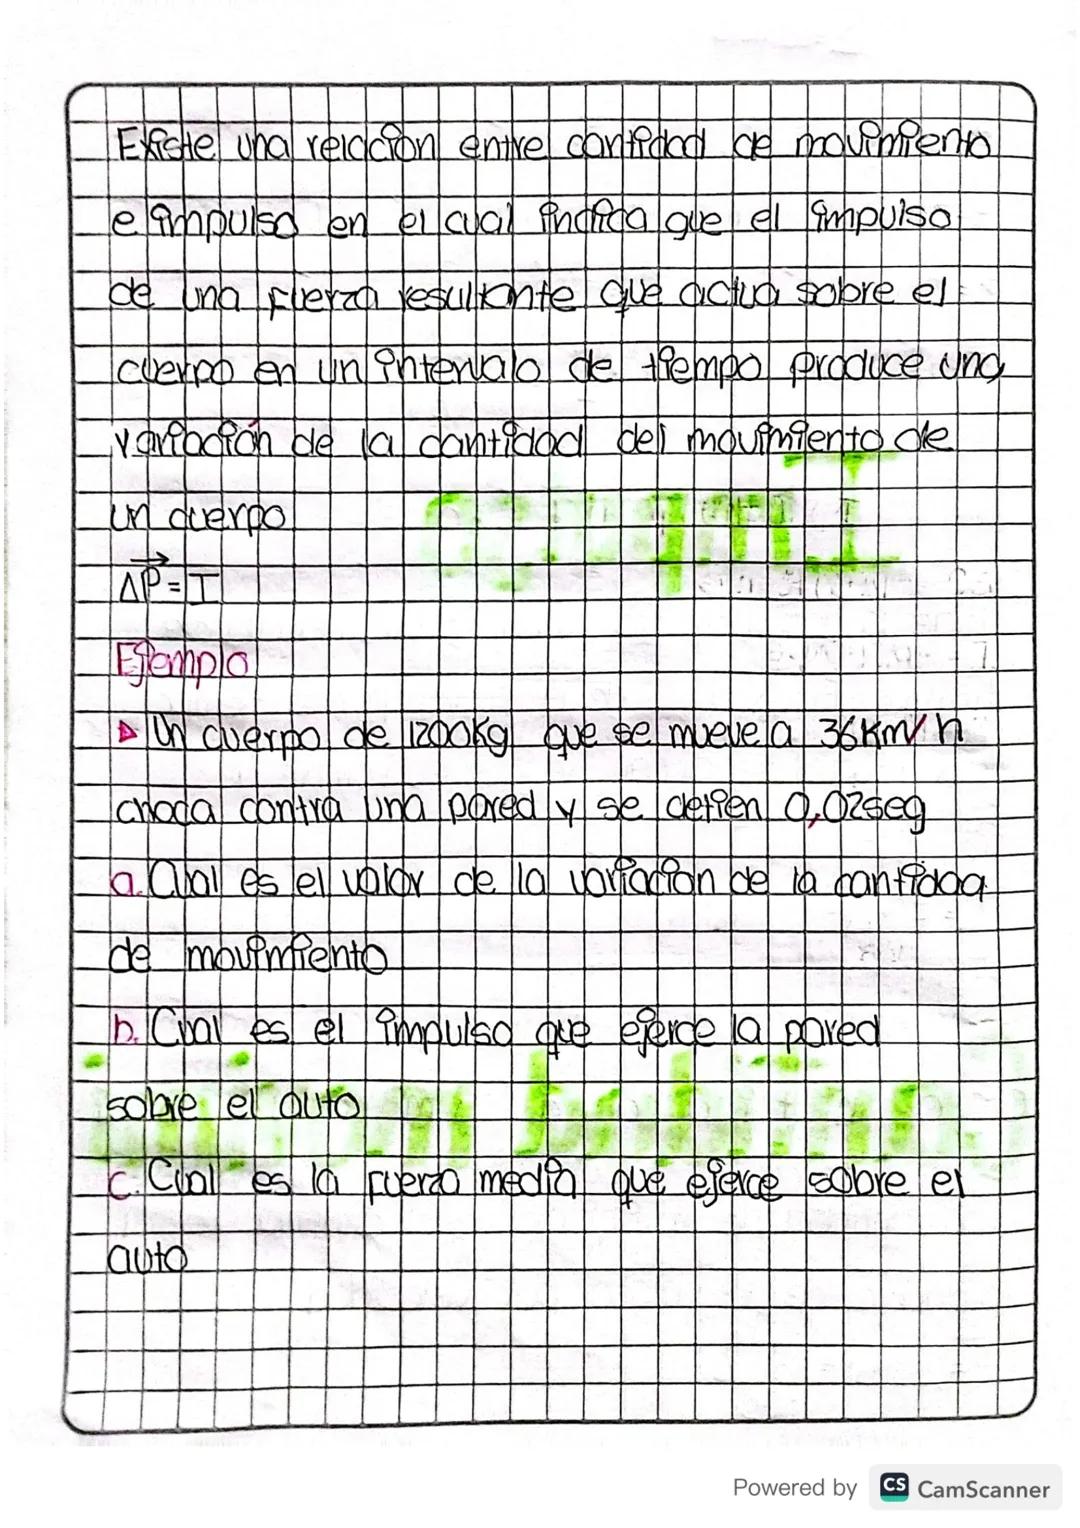 Existe una relación entre cantidad de movimiento
e impulso en el cual indica que el impulso
de una fuerza resultante que actua sobre el
cuerpo en un intervalo de tiempo produce una
variación de la cantidad del movimiento de
un cuerpo
ΔP⃗ = I
Ejemplo
▷ Un cuerpo de 1200Kg que se mueve a 36Km/h
choca contra una pared y se detien 0,02seg
a. Cual es el valor de la variacion de la cantidad
de movimiento
b. Cual es el impulso que ejerce la pared
sobre el auto
c. Cual es la fuerza media que ejerce sobre el
auto
Powered by CS CamScanner